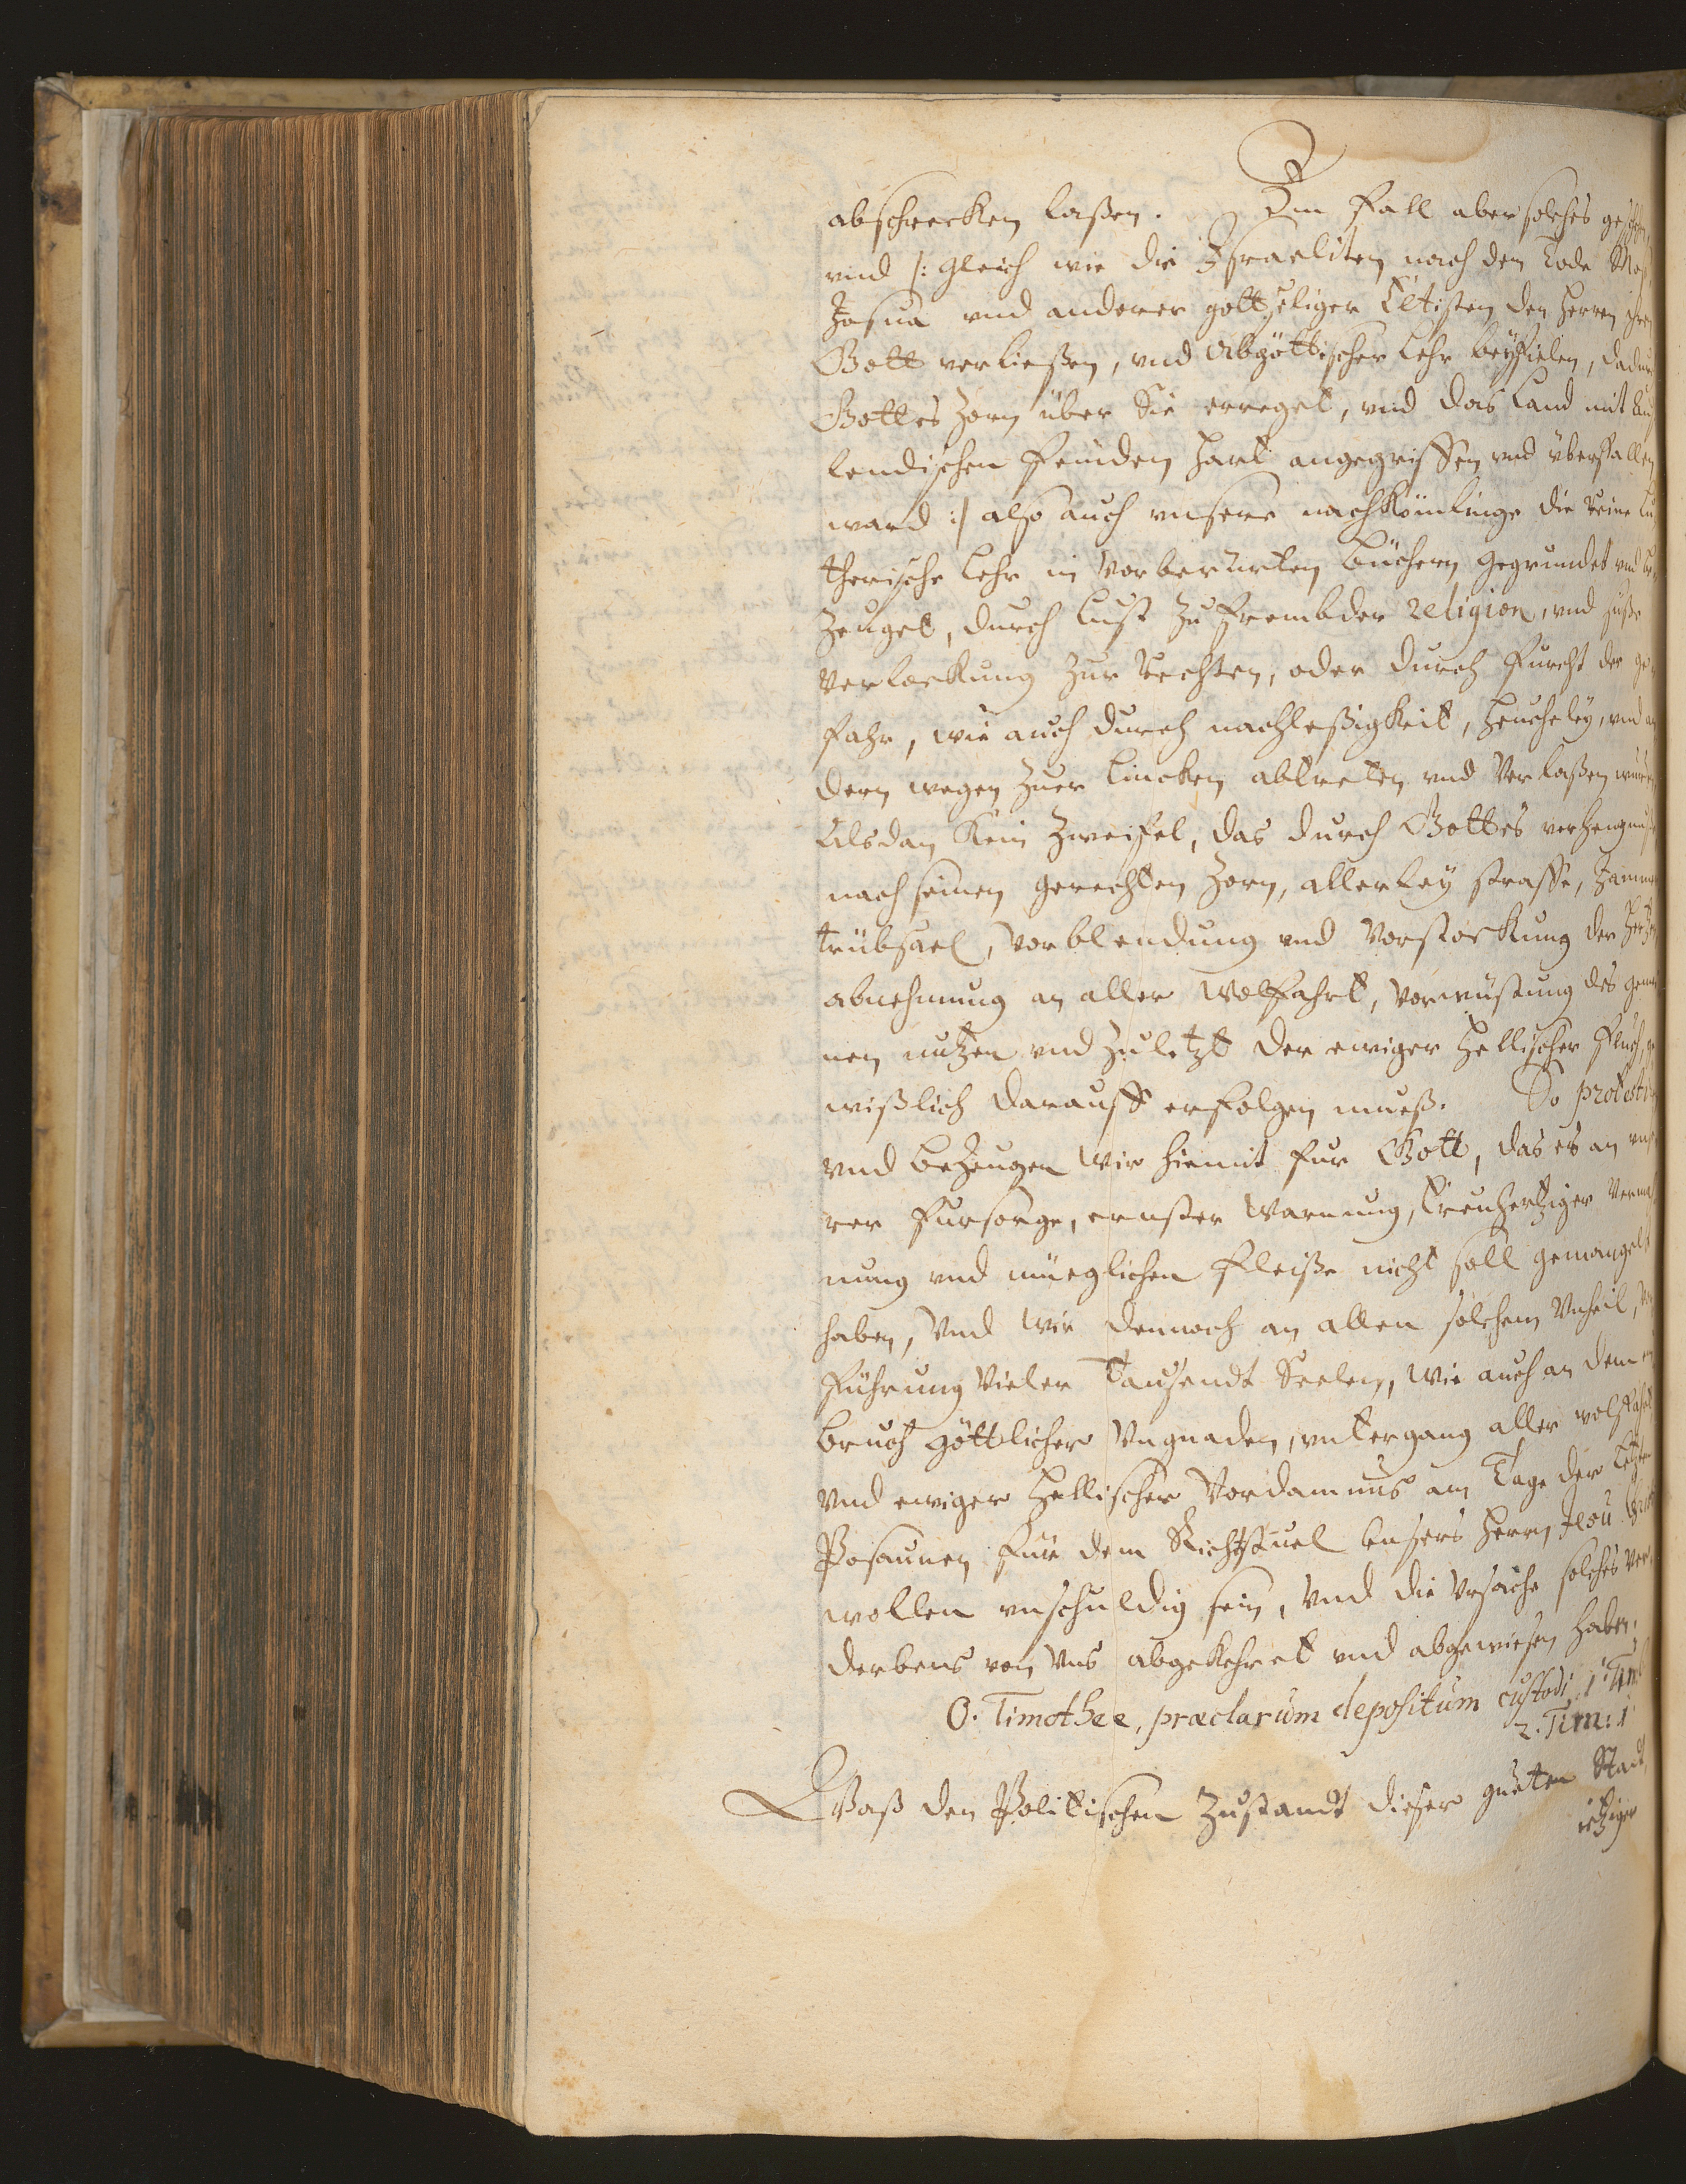 abschrecken laßen. Im fall aber solches
vnd /: gleich wie die Israeliten nach den Tode
Josua vnd anderer gottseliger Eltisten den herrn ihren
Gott verließen, vnd Abgöttischer Lehr beyfielen,
Gottes Zorn über Sie erreget, vnd das Land mit
lendischen feinden hart angegriffen vnd überfallen
ward :/ also auch vnsere nachkömlinge die reine Lu
therische Lehr in vorberurten büchern gegrundet vnd be
zeuget, durch lust zu frembder religion, vnd süße
verlockung zur rechten, oder durch furcht der ge
fahr, wie auch durch nachleßigkeit, heucheley, vnd an
dern wegen zuer lincken abtreten vnd verlaßen wurden
Alsdan kein zweifel, das durch Gottes
nach seinen gerechten Zorn, allerley straffe,
trübsael, vorblendung vnd vorstockung der hertzen
abnehmung an aller wolfahrt, vorwüstung des gemei
nen nutzen vnd zuletzt der ewiger hellischer fluch, ge
wißlich darauff erfolgen mueß. So
vnd bezeugen wir hiemit fur Gott, das es an vnse
rer fursorge, ernster warnung, treuhertziger vermah
nung vnd müeglichen fleiße nicht soll gemangelt
haben, vnd wir dennoch an allen solchem vnheil,
führung vieler tausendt Seelen, wie auch an dem
bruch göttlicher vngnaden, vntergang aller wolfahrt
vnd ewiger hellischer vordamnus am Tage der letzten
Posaunen für dem Richtstuel vnsers herrn Jesu
wollen vnschuldig sein, vnd die vrsache solches ver
derbens von vns abgekehret vnd abgewiesen haben.
O. Timothee, præclarum depositum custodi. 1 Tim
2. Tim: 1
Waß den Politischen zustandt dieser gueten Stadt
ietziger